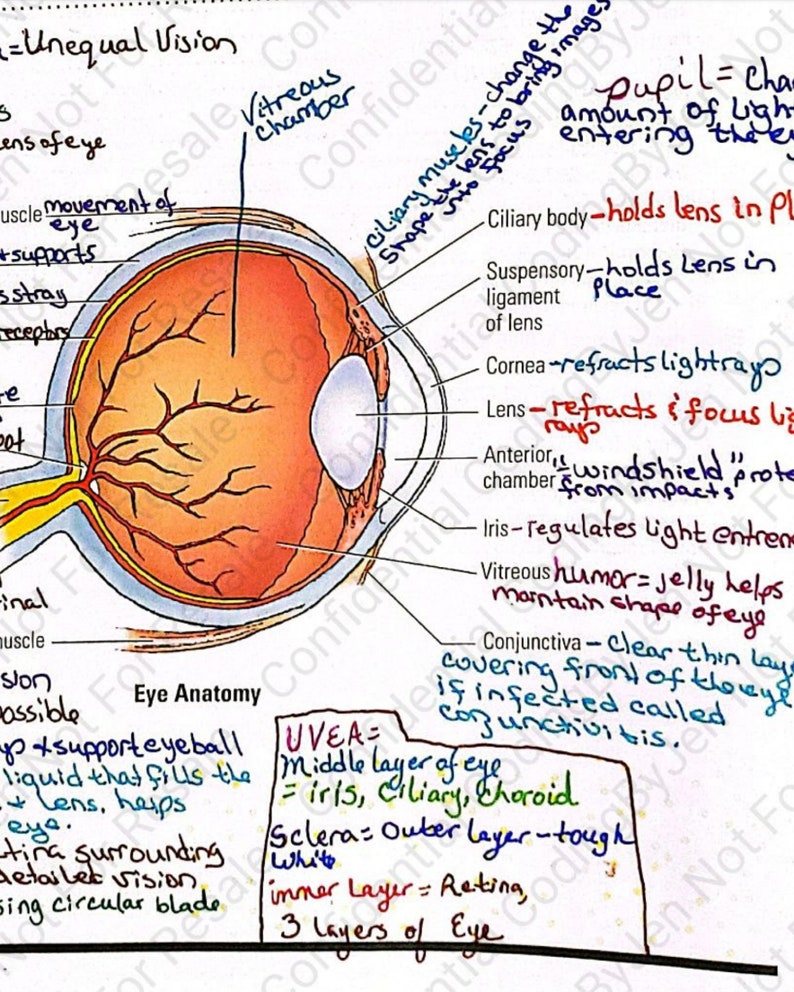 =Unequal Vision
ens of eye
Vitreous
chamber
Ciliary muscles - change the
shape the lens to bring images
into focus
pupil = Cha
amount of Light
entering the ey
uscle movement of
eye
+ supports
s stray
receptors
Ciliary body - holds lens in Pl
Suspensory - holds Lens in
ligament Place
of lens
Cornea - refracts light rays
Lens - refracts & focus lig
rays
Anterior "= windshield" prote
chamber from impacts
Iris - regulates light entren
Vitreous humor = jelly helps
maintain shape of eye
inal
uscle
Conjunctiva - Clear thin lay
covering front of the eye
if infected called
conjunctivitis.
Eye Anatomy
sion
possible
up + support eyeball
liquid that fills the
+ Lens, helps
eye.
tina surrounding
detailed vision
sing circular blade
UVEA =
Middle layer of eye
= iris, Ciliary, Choroid
Sclera = Outer layer - tough
White
inner Layer = Retina,
3 layers of Eye
Confidential CodingByJen Not For Resale